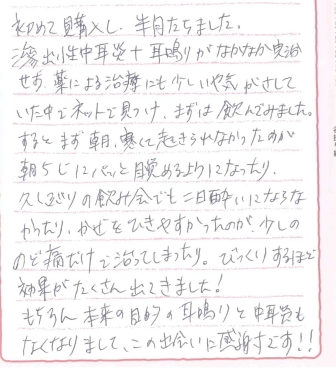 初めて購入し、半月たちました。
滲出性中耳炎+耳鳴りがなかなか完治
せず、薬による治療にも少しいや気がさして
いた中でネットで見つけ、まずは飲んでみました。
するとまず朝、寒くて起きられなかったのが
朝5じにパッと目覚めるようになったり、
久しぶりの飲み会でも二日酔いにならな
かったり、かぜをひきやすかったのが、少しの
のど痛だけで治ってしまったり。びっくりするほど
効果がたくさん出てきました!
もちろん本来の目的の耳鳴りと中耳炎も
なくなりまして、この出会いに感謝です!!